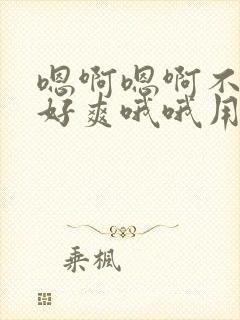 嗯啊嗯啊不
好爽哦哦用
乘楓